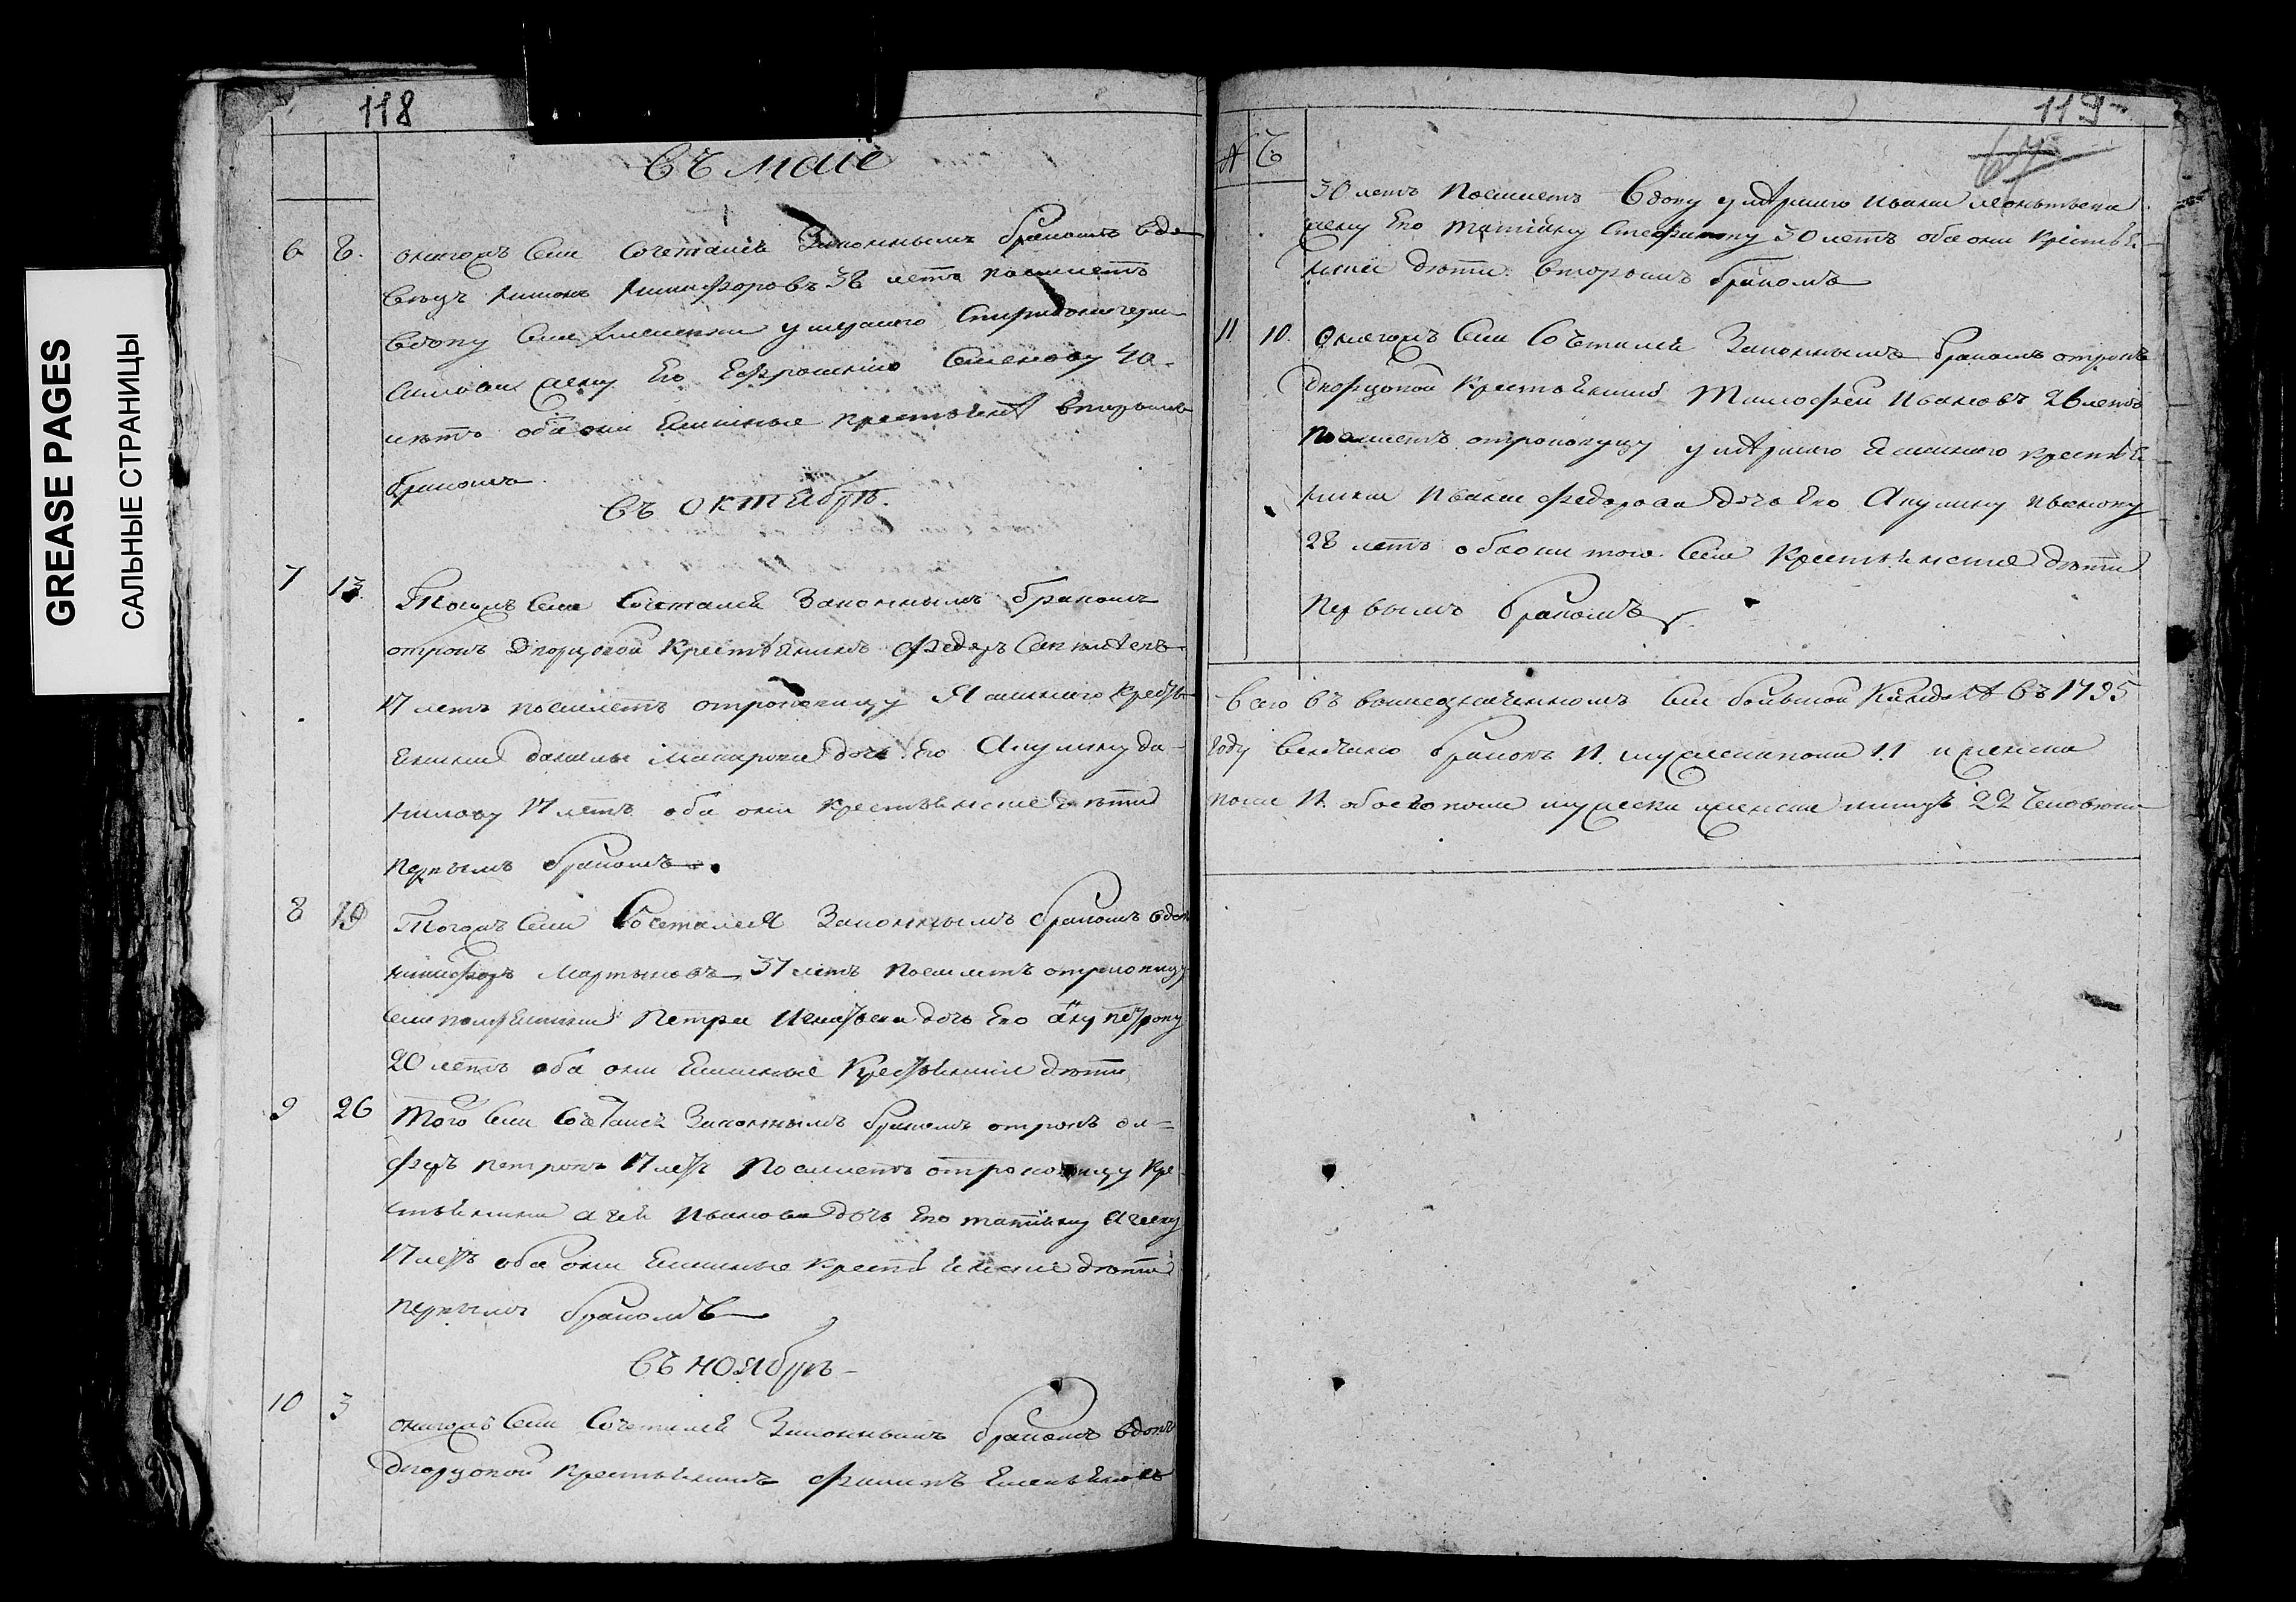 GREASE PAGES
САЛЬНЫЕ СТРАНИЦЫ
118
въ маіе
6 8. онагожъ села сочетался законнымъ бракомъ вдо
вецъ никифоровъ 38 летъ поемлетъ
вдову села умершаго
жену Его Ефросинію Семенову 40
летъ оба они Ямшные крестьяня вторымъ
бракомъ
въ октябрѣ.
7 13. Тогожъ села сочетался законнымъ бракомъ
отрокъ Дворцовой крестьянинъ Федоръ
17 летъ поемлетъ отроковицу Ямшнаго кресть
янина данилы макарова дочь Его Акулину да-
нилову 17 летъ оба они крестьянские дѣти
первымъ бракомъ.
8 19 Тогожъ села Сочетался законнымъ бракомъ вдов
никифоръ мартыновъ 37 летъ поемлетъ отроковицу
села Петра Игнатьева дочь Его анну петрову
20 летъ оба они Ямшные крестьянские дѣти
9 26 Того села сочетался законнымъ бракомъ отрокъ ол=
феръ петровъ 17 летъ поемлетъ отроковицу кре
стьянина агея Иванова дочь Его татіяну агееву
17 летъ оба они Ямшные крестьянские дѣти
первымъ бракомъ
въ ноябрѣ
10 3 онагожъ села сочетался законнымъ бракомъ вдовъ
дворцовой крестьянинъ филипъ Емельяновъ
119
67
30 летъ поемлетъ вдову умершаго ивана леонтьева
жену Его татіяну Стефанову 30 летъ оба они крестья-
нские дѣти вторымъ бракомъ
11 10. Онагожъ села Сочетался законнымъ бракомъ отрокъ
дворцовой крестьянинъ Тимофей Ивановъ 26 летъ
поемлетъ отроковицу умершаго Ямшнаго крестья-
нина Ивана федорова дочь Его Акулину иванову
28 летъ оба они того села крестьянские дѣти
первымъ бракомъ
всего въ вышеозначенномъ селе большой Кандале въ 1795
году венчано браковъ 11. мужеска пола 11 и женска
пола 11 обоего пола мужска женска 22 человека